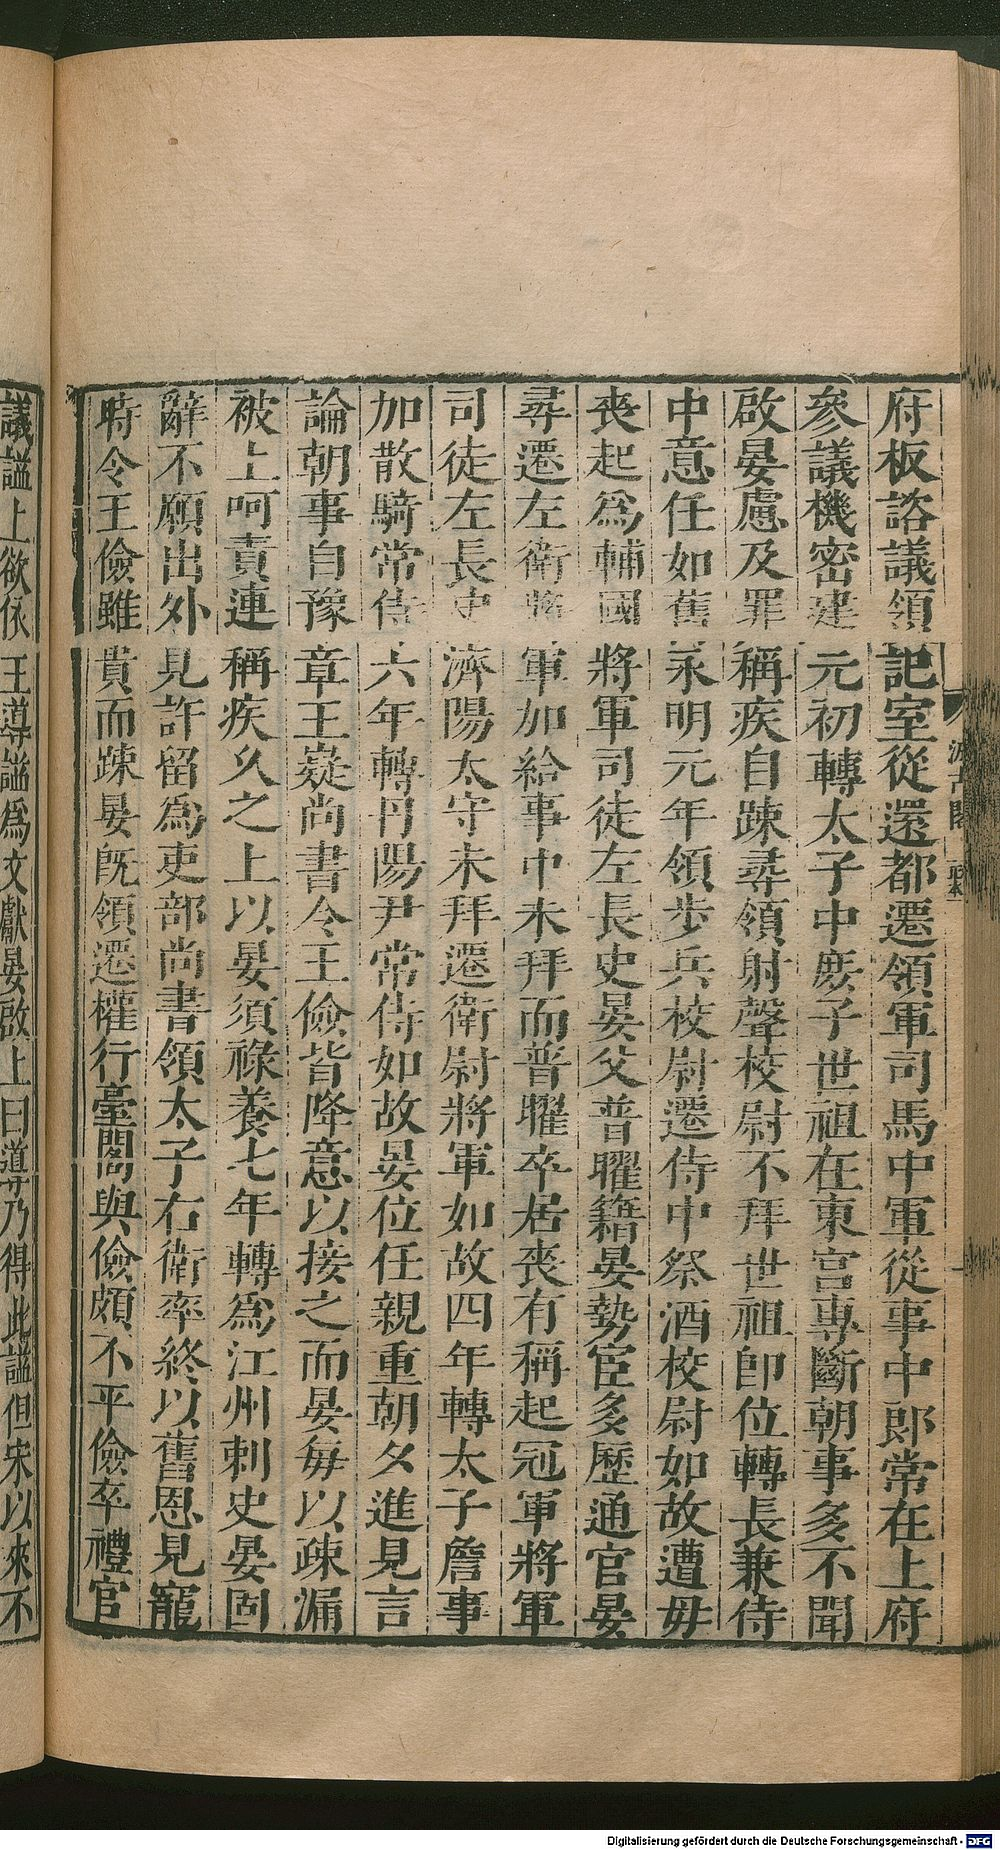 府板諮議領記室從還都遷領軍司馬中軍從事中郎常在上府
參議機密建元初轉太子中庶子世祖在東宮專斷朝事多不聞
啟晏慮及罪稱疾自疎尋領射聲校尉不拜世祖卽位轉長兼侍
中意任如舊永明元年領步兵校尉遷侍中祭酒校尉如故遭母
喪起爲輔國將軍司徒左長史晏父普曜籍晏勢宦多歷通官晏
尋遷左衛將軍加給事中未拜而普曜卒居喪有稱起冠軍將軍
司徒左長史濟陽太守未拜遷衛尉將軍如故四年轉太子詹事
加散騎常侍六年轉丹陽尹常侍如故晏位任親重朝夕進見言
論朝事自豫章王嶷尚書令王儉皆降意以接之而晏每以疎漏
被上呵責連稱疾久之上以晏須祿養七年轉爲江州刺史晏固
辭不願出外見許留爲吏部尚書領太子右衛率終以舊恩見寵
時令王儉雖貴而疎晏既領選權行臺閣與儉頗不平儉卒禮官
議謚上欲依王導謚爲文獻晏啟上曰導乃得此謚但宋以來不
汲古閣
Digitalisierung gefördert durch die Deutsche Forschungsgemeinschaft - DFG